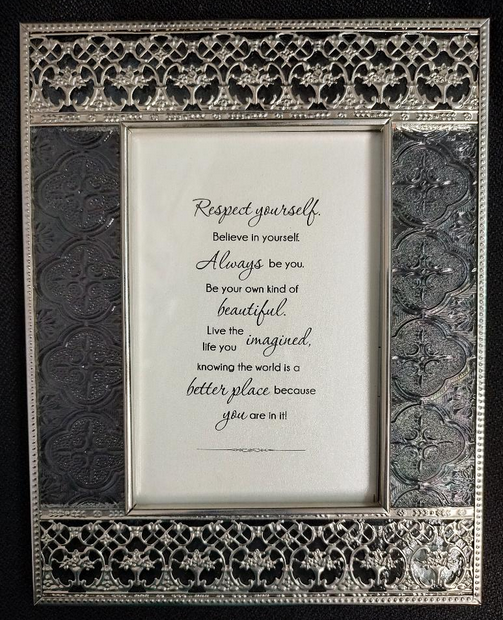 Respect yourself.
Believe in yourself.
Always be you.
Be your own kind of
beautiful.
Live the
life you imagined,
knowing the world is a
better place because
you are in it!